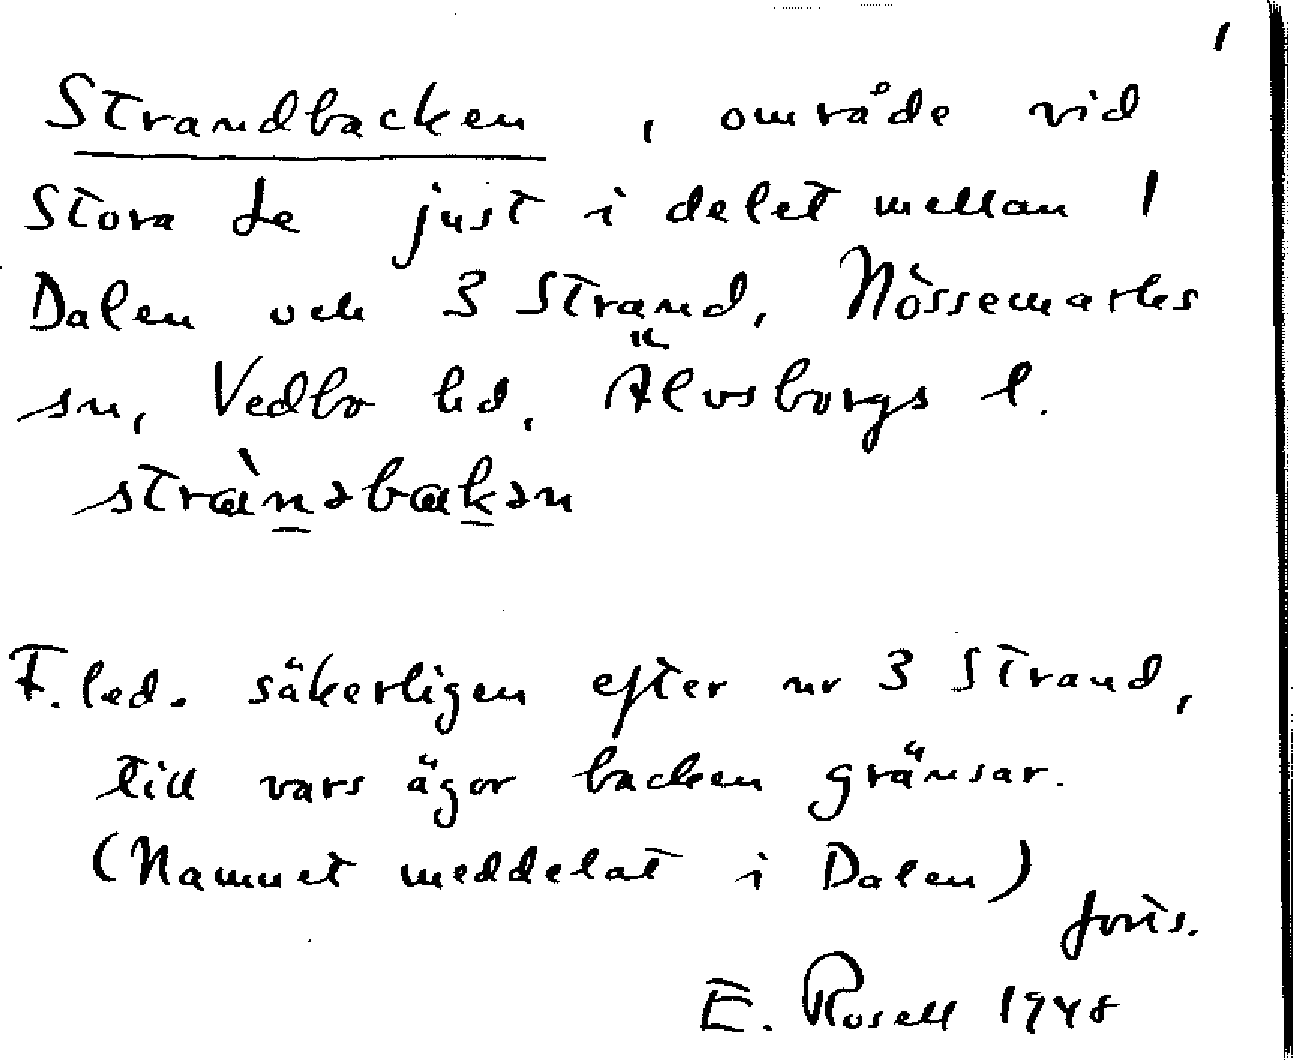 1
Strandbacken, område vid
Stora Le just i delet mellan 1
Dalen och 3 Strand, Nössemarks
sn, Vedbo hd, Älvsborgs l.
strànəbakən
F.led. säkerligen efter nr 3 Strand,
till vars ägor backen gränsar.
(Namnet meddelat i Dalen)
forts.
E. Rosell 1948